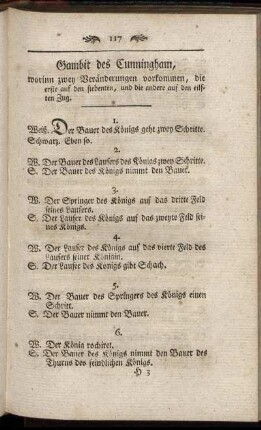 117
Gambit des Cunningham,
worinn zwey Veränderungen vorkommen, die
erste auf den siebenten, und die andere auf den eilf-
ten Zug.
1.
Weiß. Der Bauer des Königs geht zwey Schritte.
Schwarz. Eben so.
2.
W. Der Bauer des Laufers des Königs zwey Schritte.
S. Der Bauer des Königs nimmt den Bauer.
3.
W. Der Springer des Königs auf das dritte Feld
seines Laufers.
S. Der Laufer des Königs auf das zweyte Feld sei-
nes Königs.
4.
W. Der Laufer des Königs auf das vierte Feld des
Laufers seiner Königin.
S. Der Laufer des Königs gibt Schach.
5.
W. Der Bauer des Springers des Königs einen
Schritt.
S. Der Bauer nimmt den Bauer.
6.
W. Der König rochiret.
S. Der Bauer des Königs nimmt den Bauer des
Thurns des feindlichen Königs.
H 3